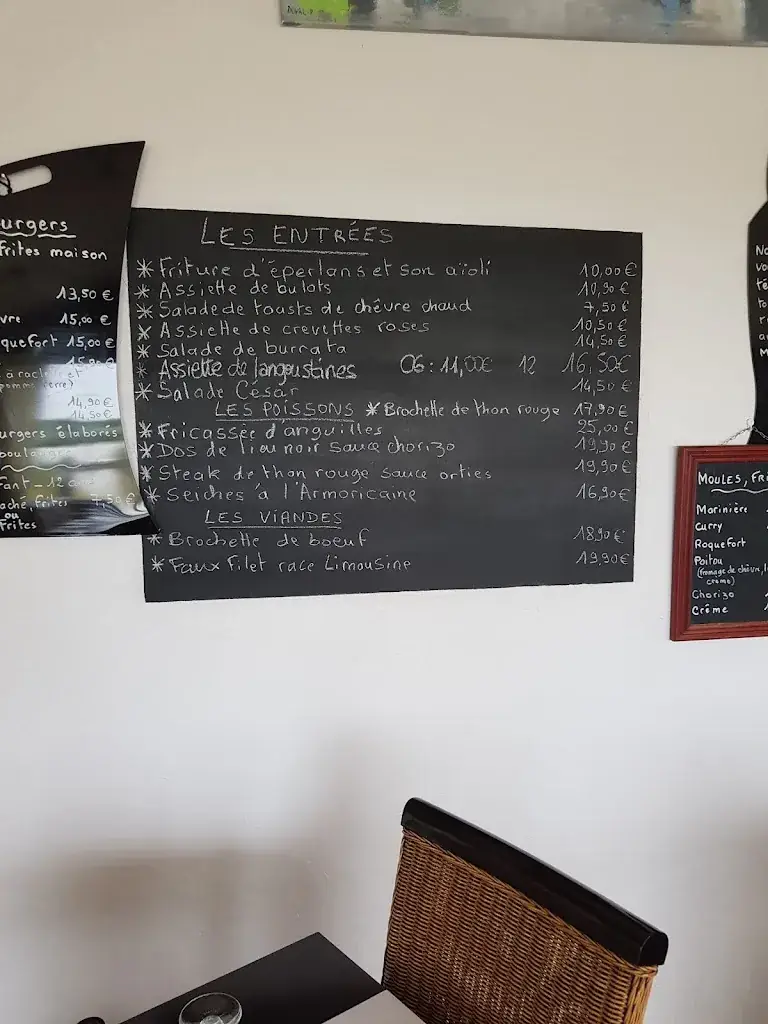 urgers
Frites maison
13,50 €
vre 15,00 €
quefort 15,00 €
15,90 €
à raclette et
pomme terre)
14,90 €
14,50 €
urgers élaborés
fant - 12 ans
aché, frites 7,50 €
ou
Frites
LES ENTRÉES
* Friture d'éperlans et son aïoli 10,00 €
* Assiette de bulots 10,90 €
* Salade de toasts de chêvre chaud 7,50 €
* Assiette de crevettes roses 10,50 €
* Salade de burrata 14,50 €
* Assiette de langoustines 06 : 11,00€ 12 16,50€
* Salade César 14,50 €
LES POISSONS * Brochette de thon rouge 17,90 €
* Fricassée d'anguilles 25,00 €
* Dos de lieu noir sauce chorizo 19,90 €
* Steak de thon rouge sauce orties 19,90 €
* Seiches à l'Armoricaine 16,90 €
LES VIANDES
* Brochette de boeuf 18,90 €
* Faux Filet race Limousine 19,90 €
MOULES, FRI
Marinière
Curry
Roquefort
Poitou
(fromage de chèvre, l
crème)
Chorizo
Crême